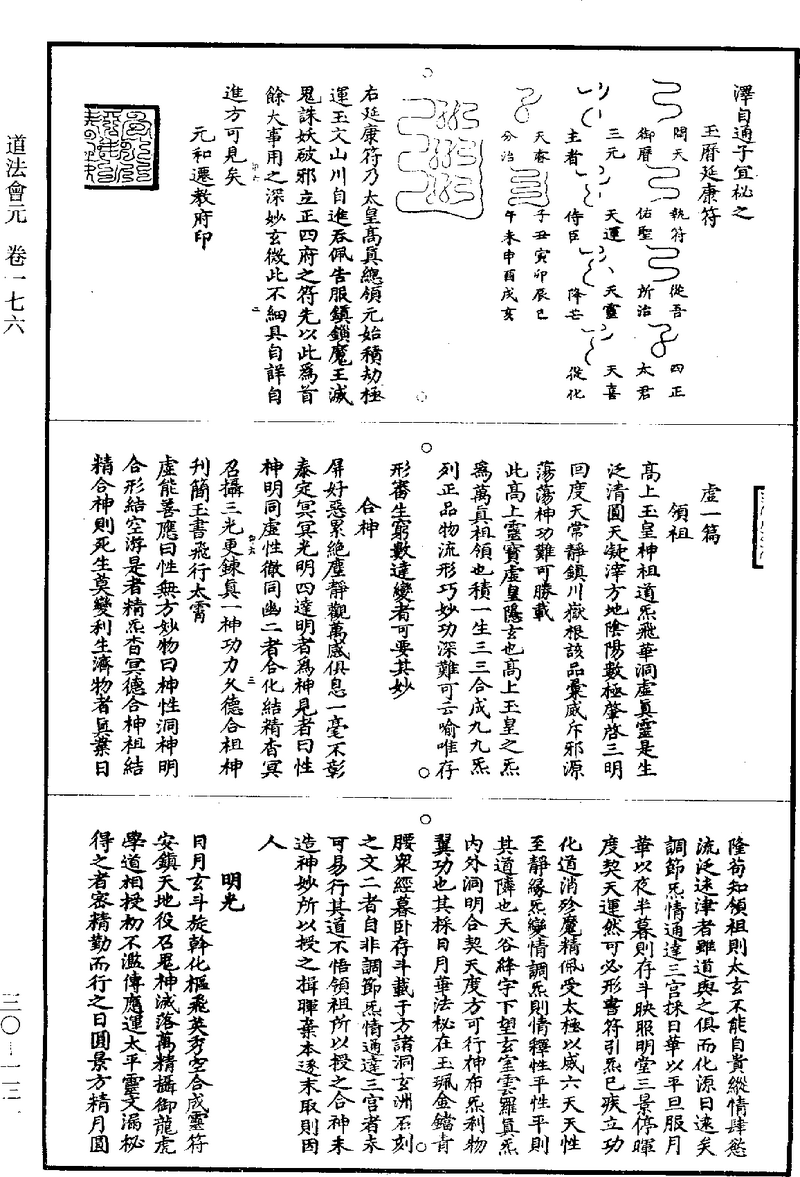 道法會元 卷一七六
三〇—一一二
澤自通子宜秘之
玉曆延康符
問天 執符 從吾 四正
御曆 佑聖 所治 太君
三元 天運 天靈 天喜
主者 侍臣 降芒 從化
天春 子丑寅卯辰巳
分治 午未申酉戌亥
右延康符乃太皇高眞總領元始積劫極
運玉文山川自進吞佩告服鎮鎖魔王滅
鬼誅妖破邪立正四府之符先以此爲首
餘大事用之深妙玄微此不細具自詳自
進方可見矣
元和遷教府印
虛一篇
領祖
高上玉皇神祖道炁飛華洞虛眞靈是生
泛清圓天凝滓方地陰陽數極肇啓三明
回度天常靜鎮川嶽根該品彙威斥邪源
蕩蕩神功難可勝載
此高上靈寶虛皇隱玄也高上玉皇之炁
爲萬眞祖領也積一生三三合成九九炁
列正品物流形巧妙功深難可云喻唯存
形審生窮數達變者可要其妙
合神
屏好惡累絕塵靜觀萬感俱息一毫不彰
泰定冥冥光明四達明者爲神見者曰性
神明同虛性徹同幽二者合化結精杳冥
召攝三光更鍊眞一神功力久德合祖神
刊簡玉書飛行太霄
虛能善應曰性無方妙物曰神性洞神明
合形結空游是者精炁杳冥德合神祖結
精合神則死生莫變利生濟物者眞業日
隆苟知領祖則太玄不能自貴縱情肆慾
流泛迷津者雖道與之俱而化源日遠矣
調節炁情通達三宮採日華以平旦服月
華以夜半暮則存斗映服明堂三景停暉
度契天運然可必形書符引炁已疾立功
化道消殄魔精佩受太極以威六天天性
至靜緣炁變情調炁則情釋性平性平則
其道隣也天谷絳字下望玄室雲羅眞炁
內外洞明合契天度方可行神布炁利物
翼功也其採日月華法秘在玉珮金鐺青
腰衆經暮臥存斗載于方諸洞玄洲石刻
之文二者自非調節炁情通達三宮者未
可易行其道不悟領祖所以授之合神未
造神妙所以授之揖暉棄本逐末取則因
人
明光
日月玄斗旋斡化樞飛英秀空合成靈符
安鎮天地役召鬼神滅落萬精攝御龍虎
學道相授初不濫傳應運太平靈文漏秘
得之者密精勤而行之日圓景方精月圓